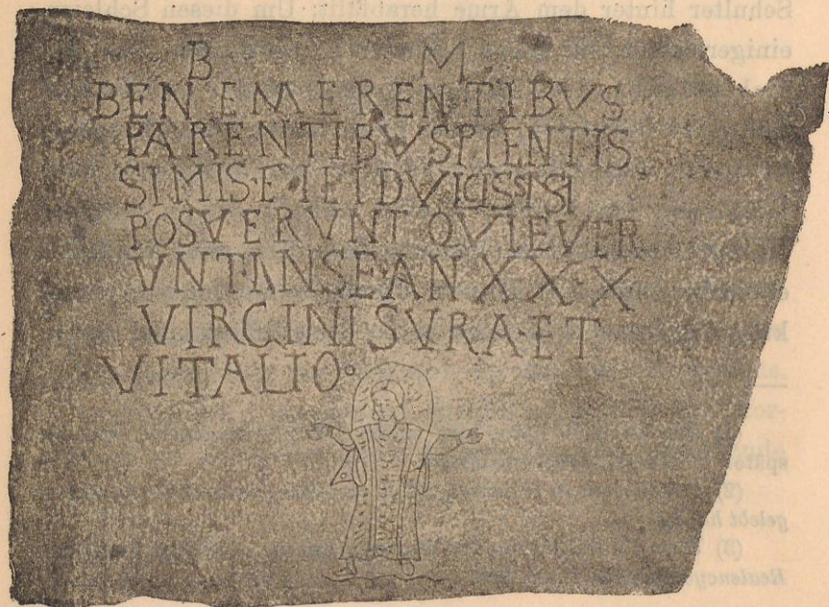 B M
BENEMERENTIBVS
PARENTIBVS PIENTIS
SIMIS·E·
POSVERVNT QVIEVER
VNT·INSE·AN XX·X
VIRGINI SVRA·ET
VITALIO